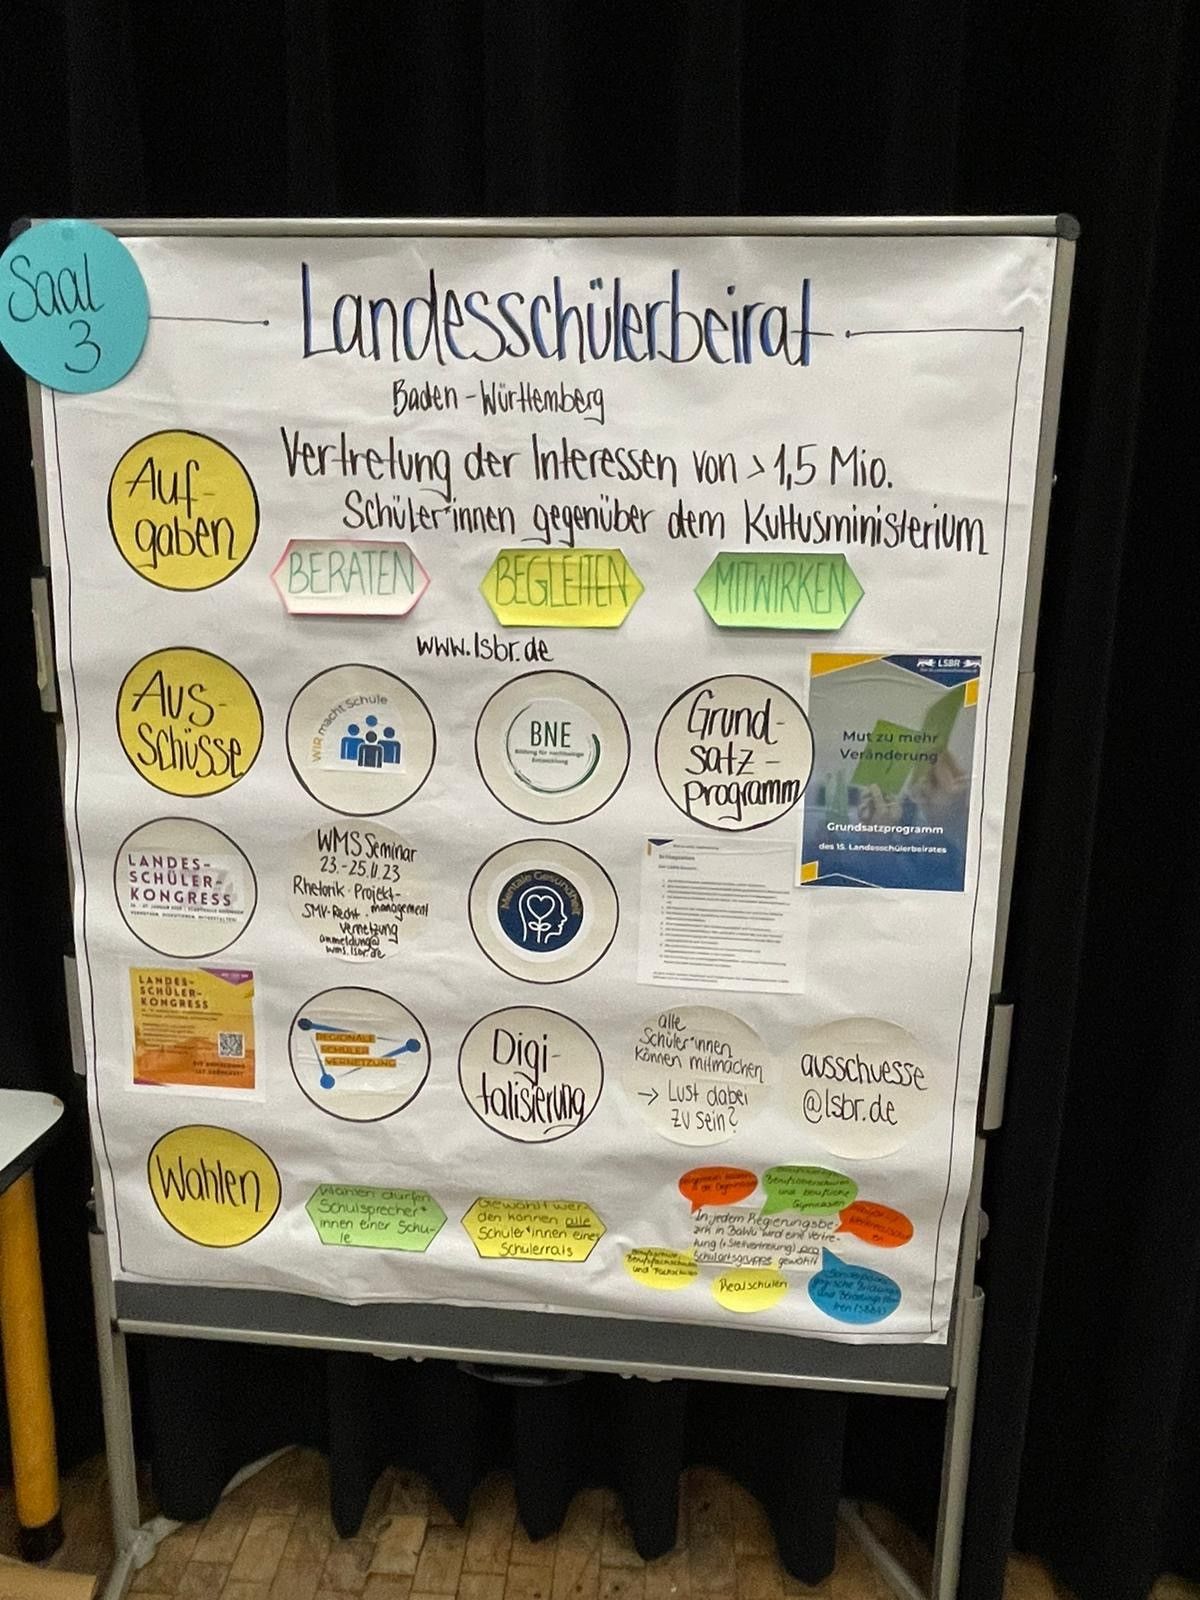 Saal
3
Landesschülerbeirat
Baden-Württemberg
Auf-
gaben
Vertretung der Interessen von > 1,5 Mio.
Schüler*innen gegenüber dem Kultusministerium
BERATEN
BEGLEITEN
MITWIRKEN
www.lsbr.de
Aus-
schüsse
WIR macht Schule
BNE
Bildung für nachhaltige
Entwicklung
Grund-
satz-
programm
LSBR
Mut zu mehr
Veränderung
Grundsatzprogramm
des 15. Landesschülerbeirates
LANDES-
SCHÜLER-
KONGRESS
WMS Seminar
23.-25.11.23
Rhetorik · Projekt-
management
SMV-Recht ·
Vernetzung
anmeldung@
wms.lsbr.de
Mentale Gesundheit
LANDES-
SCHÜLER-
KONGRESS
REGIONALE
SCHÜLER
VERNETZUNG
Digi-
talisierung
alle
Schüler*innen
können mitmachen
→ Lust dabei
zu sein?
ausschuesse
@lsbr.de
Wahlen
Wählen dürfen
Schulsprecher*
innen einer Schu-
le
Gewählt wer-
den können alle
Schüler*innen eines
Schülerrats
Berufsoberschulen
und berufliche
Gymnasien
In jedem Regierungsbe-
zirk in BaWü wird eine Vertre-
tung (+ Stellvertretung) pro
Schulartsgruppe gewählt
Berufsfachschulen
und Fachschulen
Realschulen